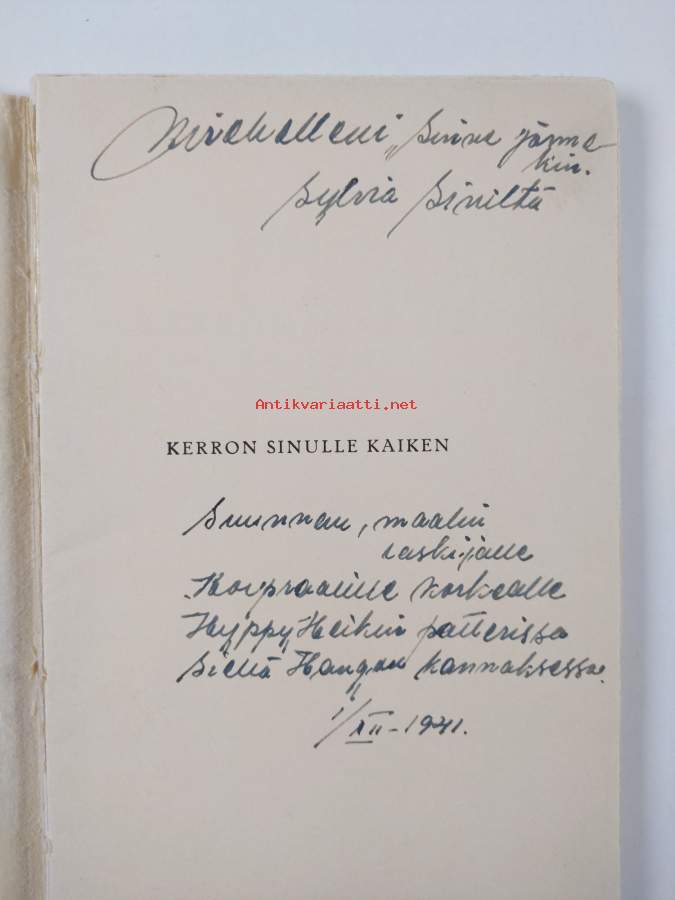 Sylvia Siniltä
Antikvariaatti.net
KERRON SINULLE KAIKEN
Suunnan, maalin
laskijalle
Korpraalille korkealle
HyppyHeikin patterissa
siellä Hangon kannaksessa.
1/XII-1941.